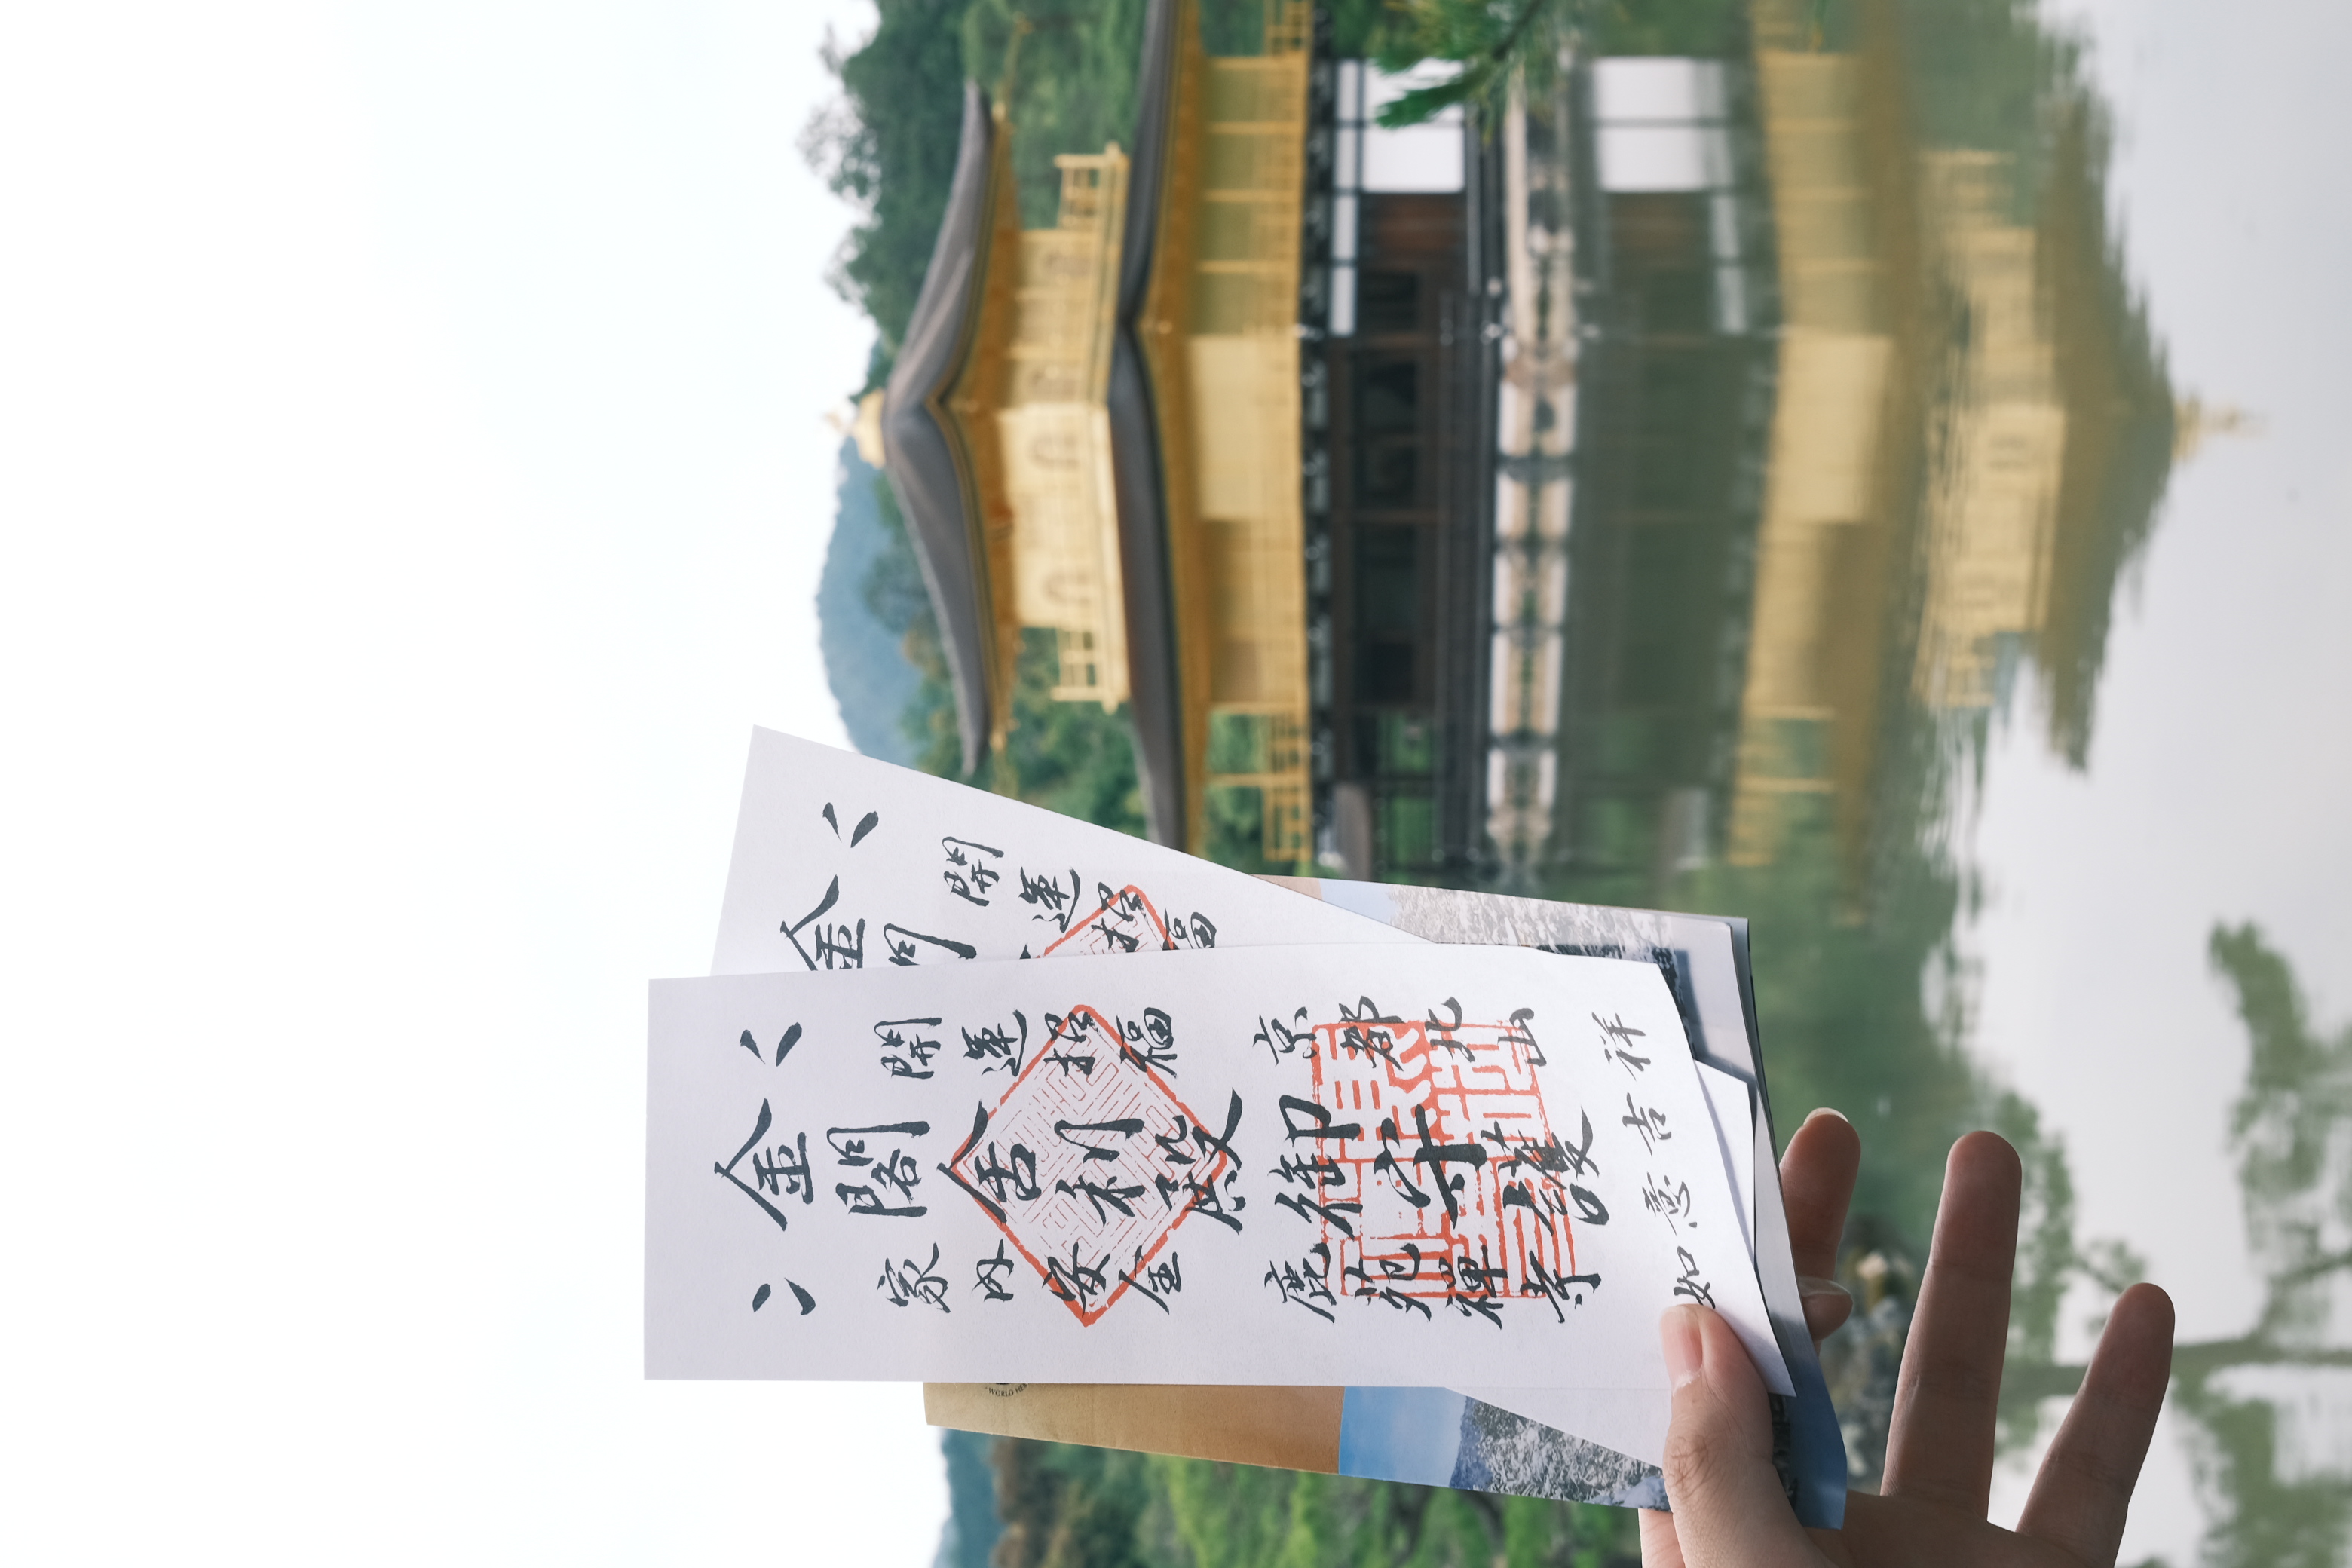 開運招福
京都北山
金閣舎利殿
御守護
家内安全
鹿苑禪寺
如意吉祥
開運招福
金
WORLD HE